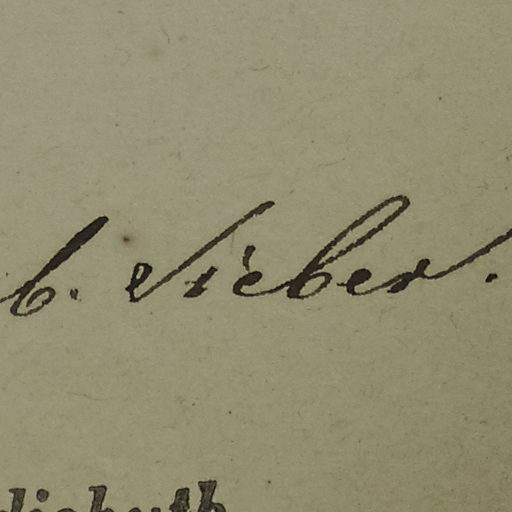 b. Sieber.